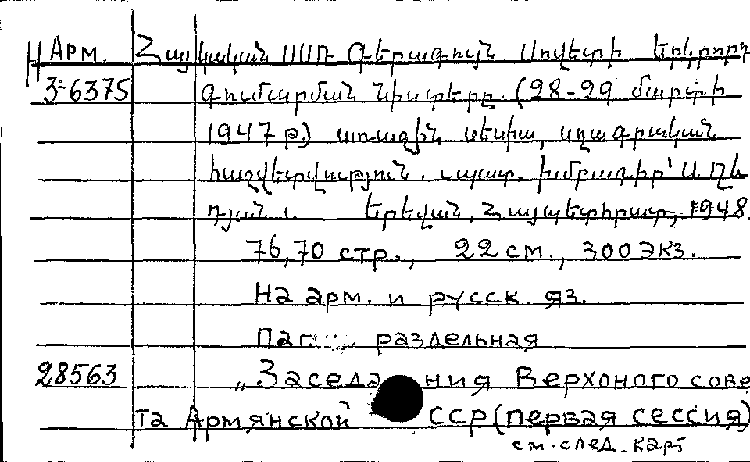 Арм. Հայկական ՍՍՌ Գերագույն Սովետի երկրորդ
3-6375 գումարման նիստերը. (28-29 մարտի
1947 թ.) առաջին սեսիա, սղագրական
հաշվետվություն. պատ. խմբագիր՝ Ա. Ղև
դյան. Երեվան, Հայպետհրատ, 1948.
76,70 стр., 22 см., 300 экз.
На арм. и русск. яз.
раздельная
28563 „Заседания Верхоного сове
та Армянской ССР (первая сессия)
см. след. карт